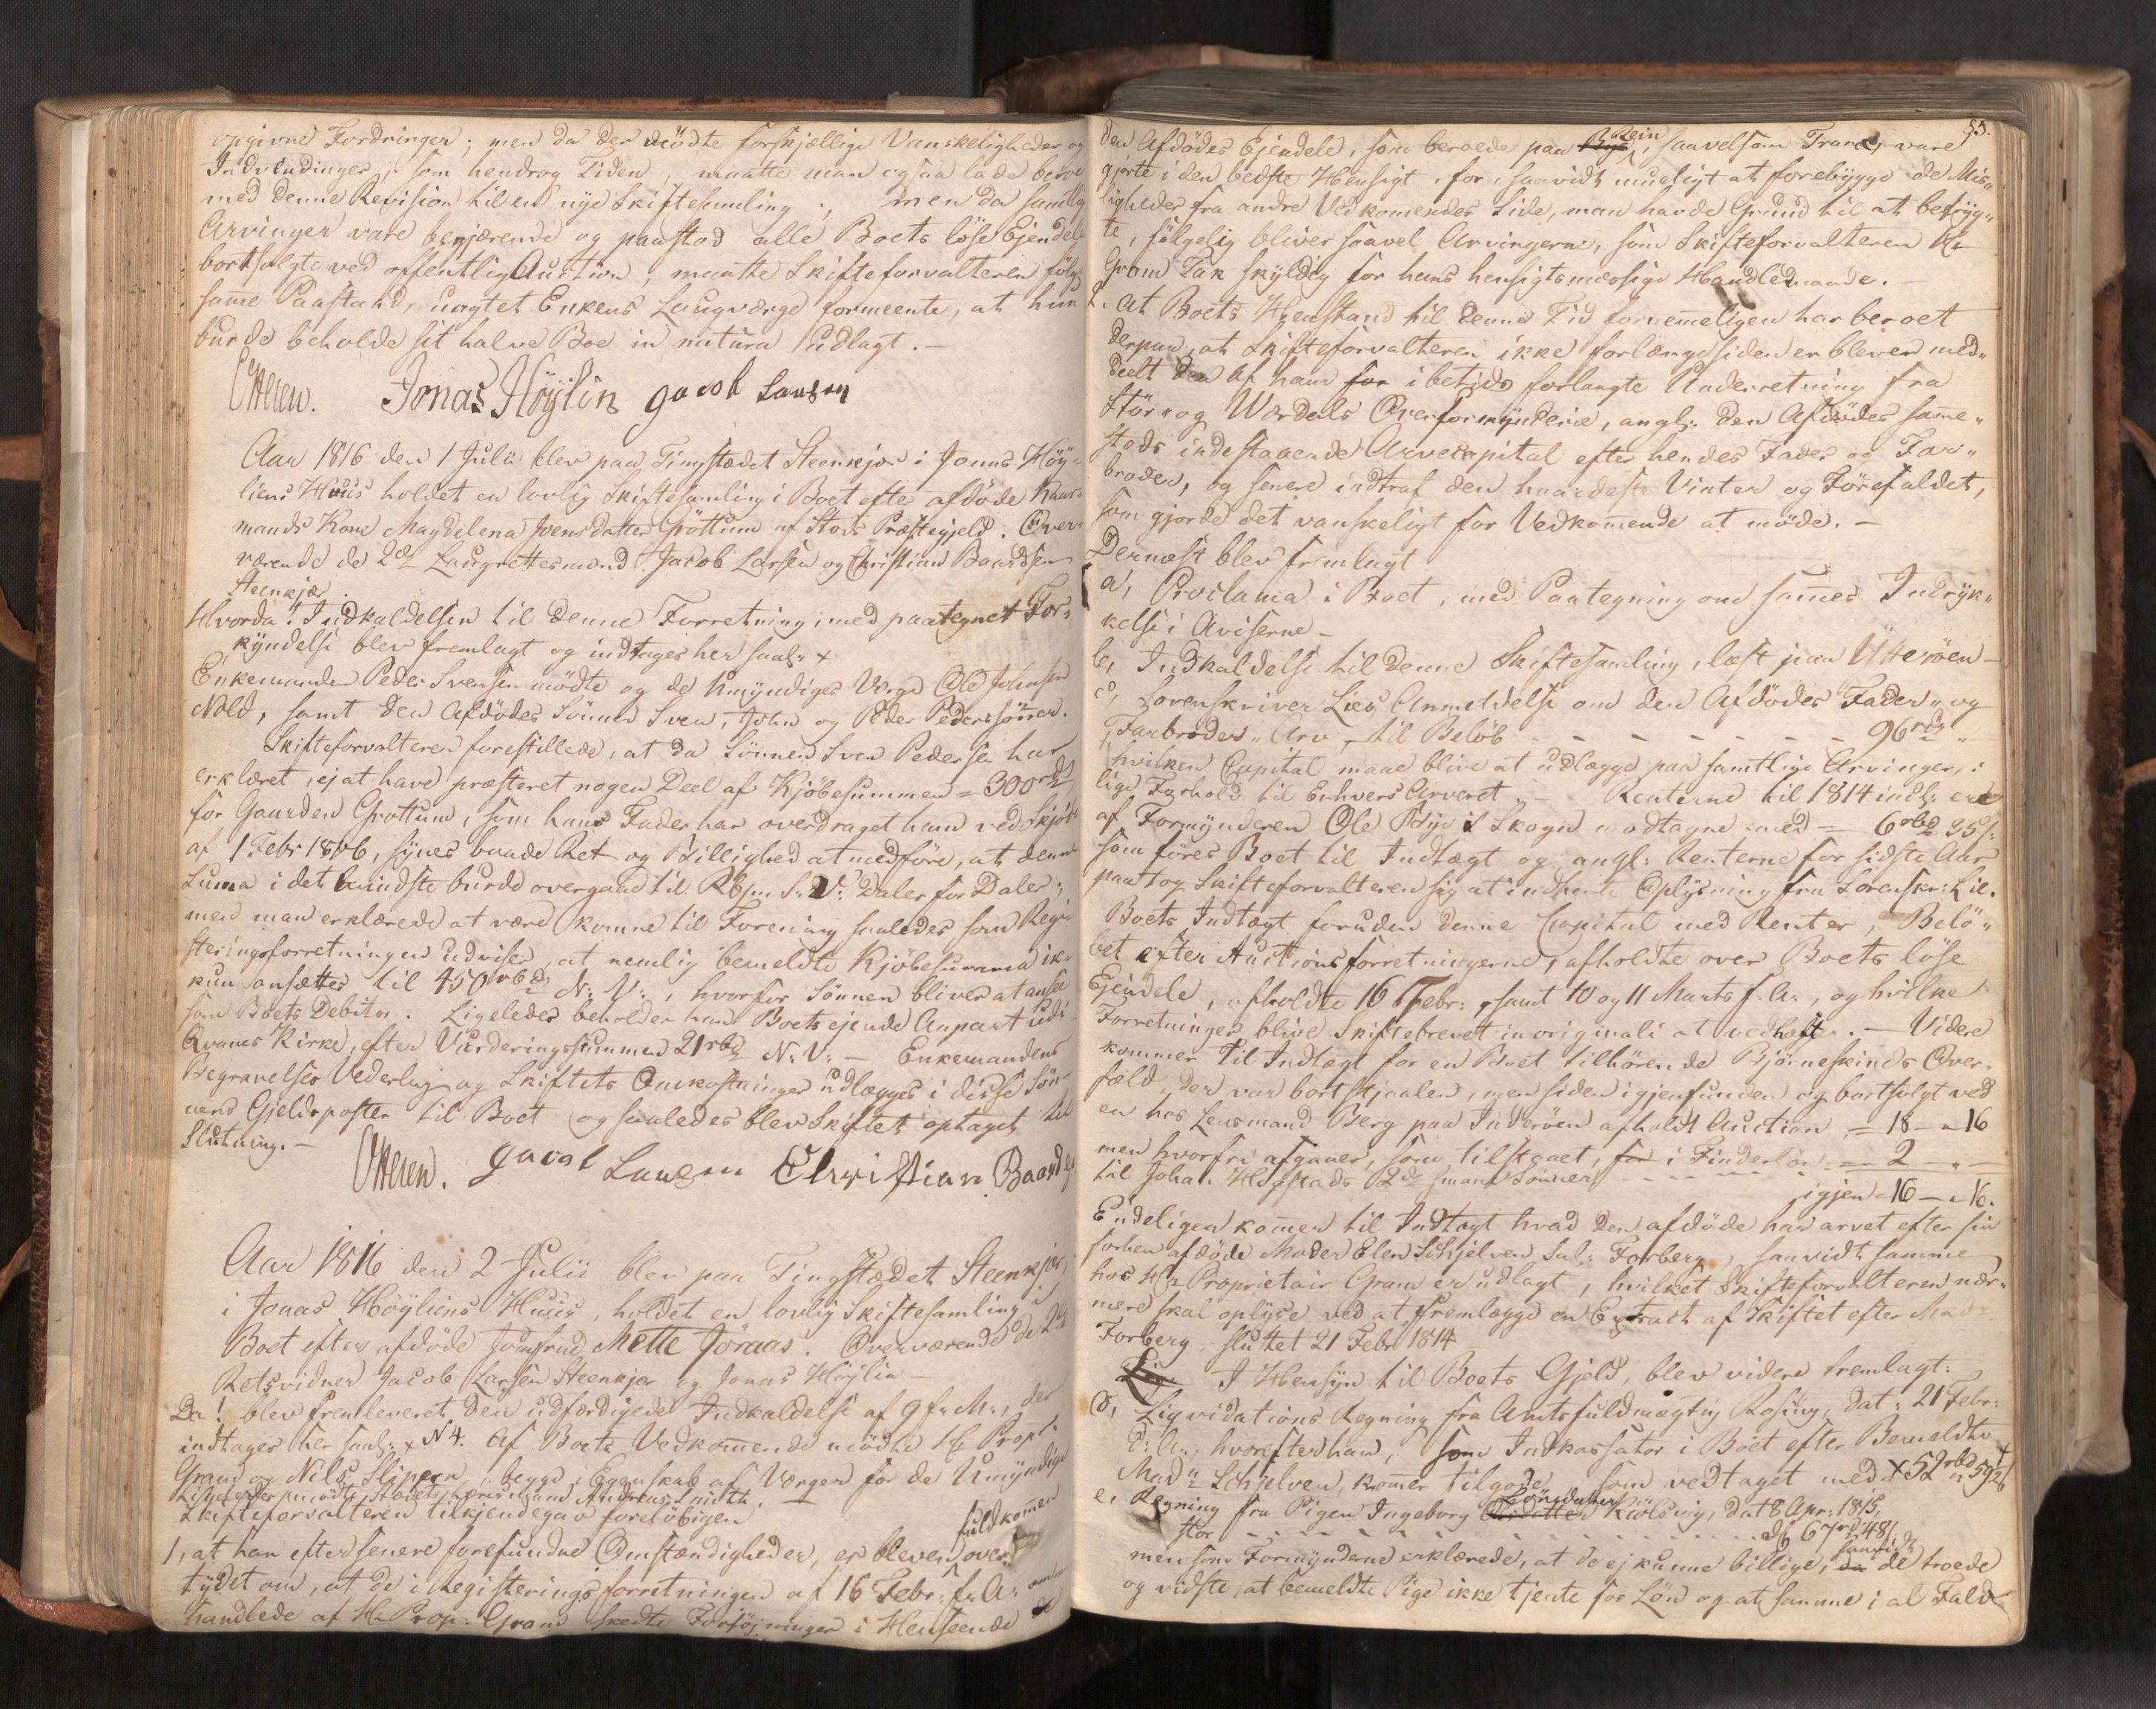 opgivne Fordringer; men da der mödte forskjællige Vanskeligheder og
Indvendinger, som hendrog Tiden, maatte man ogsaa lade beroe
med denne Revision til en nye Skiftesamling; men da samtlig
Arvinger vare begjærende og paastod alle Boets löse Ejendele
bortsolgte ved offentlig Auction, maatte Skifteforvalteren fölge
samme Paastand, uagtet Enkens Laugværge formeente, at hun
burde beholde sit halve Boe in natura udlagt. -
Jonas Höylin Jacob Larsen
Aar 1816 den 1 Julii blev paa Tingstædet Steenkjær i Jonas Höy-
liens Huus holdet en lovlig Skiftesamling i Boet efter afdöde Huus-
mands Kone Magdelena Svensdatter Gröttum af Stods Præstegjeld. Over-
værende de 2de Laugrettesmænd Jacob Larsen og Christian Baardsen
Steenkjær.
Hvorda! Indkaldelsen til denne Forretning, med paategnet For-
kyndelse blev fremlagt og indtages her saal: +
Enkemanden Peder Svensen mödte og de Umyndiges Værge Ole Johnsen
Nöld, samt den Afdödes Sönner Sven, John og Peder Pederssönner.
Skifteforvalteren forestillede, at da Sönnen Sven Pedersen har
erklæret, ej at have præsteret nogen Deel af Kjöbesummen = 300 rdr
for Gaarden Grøttum, som hans Fader har overdraget ham ved Skjöde
af 1 Febr 1806, synes baade Ret og Billighed at medföre, at denne
Suma i det mindste burde overgaae til Rbp. S. V. Daler for Daler;
men man erklærede at være komne til Forening saaledes som Regi-
steringsforretningen udviser, at nemlig bemeldte Kjöbesumma ik-
kun ansættes til 450 rbd N: V:, hvorfor Sönnen bliver at ansee
som Boets Debitor. Ligeledes beholder han Boets ejende Anpart udi
Qvams Kirke, efter Vurderingssummen 21 rbd N: V: - Enkemandens
Begravelses Vederlag og Skiftets Omkostninger udlægges i disse Sön-
nens Gjeldsposter til Boet og saaledes blev Skiftet optaget til
Slutning. -
Jacob Larsen Christian Baardsen
Aar 1816 den 2 Julii blev paa Tingstædet Steenkjær,
i Jonas Höyliens Huus, holdet en lovlig Skiftesamling i
Boet efter afdöde Jomfrue Mette Joraas. Overværende de 2de
Retsvidner Jacob Larsen Steenkjær og Jonas Höylin -
Da! blev fremleveret den udfærdigede Indkaldelse af 9 f. M:, der
indtages her saal: + N 4. Af Boets Vedkommende mödte Hr Propr:
Gram og Nils Slipern, begge i Egenskab af Værger for de Umyndige
Skifteforvalteren tilkjendegav forelöbigen
1, at han efter senere forefundne Omstændigheder, er bleven fuldkommen over-
tydet om, at de i Registeringsforretningen af 16 Febr: f: A: om-
handlede af Hr Prop: Gram skedte Forföjninger i Henseende
55.
den Afdödes Ejendele, som beroede paa , saavelsom Trane, vare
gjorte i den bedste Hensigt, for, saavidt mueligt at forebygge de Mis-
ligheder fra andre Vedkommendes Side, man havde Grund til at befryg-
te, fölgelig bliver saavel Arvingerne, som Skifteforvalteren Hr
Gram Tak skyldig for hans hensigtsmæssige Handlemaade. -
2. at Boets Henstand til denne Tid fornemmeligen har beroet
derpaa, at Skifteforvalteren ikke forlængesiden er bleven med-
deelt den af ham for ibetids forlangte Underretning fra
Stör- og Værdals Overformynderie, angl: den Afdödes same-
steds indestaaende Arvecapital efter hendes Fader og Far-
broder, og senere indtraf den haardeste Vinter og Föresaldet,
som gjorde det vanskeligt for Vedkommende at möde. -
Dernæst blev fremlagt
a, Proclama i Boet, med Paategning om sammes Indryk-
kelse i Aviserne -
b, Indkaldelse til denne Skiftesamling, læst paa Ytteröen -
c, Sorenskriver Lies Anmeldelse om den Afdödes Fader- og
Farbroders-Arv, til Belöb - - - - - - - 96 rbd "
hvilken Capital maae blive at udlægge paa samtlige Arvinger, i
lige Forhold til Enhvers Arveret - Renterne til 1814 incl: ere
af Formynderen Ole Bye Skogn modtagne med = 6 rbd 25 s:
som föres Boet til Indtægt og angl: Renterne for sidste Aar
paatog Skifteforvalteren sig at indhente Oplysning fra Sorenskr: Lie.
Boets Indtægt foruden denne Capital med Renter, Belö-
bet efter Auctionsforretningerne, afholdte over Boets löse
Ejendele, afholdte 16 Febr:, samt 10 og 11 Marts f. A:, og hvilke
Forretninger blive Skiftebrevet in originali at vedhefte. - Videre
kommer til Indtægt for en Boet tilhörende Björneskinds Over-
fæld, der var bortstjaalen, men siden igjenfunden og bortsolgt ved
en hos Lensmand Berg paa Inderöen afholdt Auction = 18 - " 16
men hvorfra afgaaer, som tilstaaet, for i Finderlön = 2 - " -
til Johan Hegstads 2de smaae Sönner - - - - igjen = 16 - " 16.
Endeligen kommer til Indtægt hvad den afdöde har arvet efter sin
forhen afdöde Moder Elen Schjelven Sal: Forberg, saavidt samme
hos Hr Proprietair Gram er udlagt, hvilket Skifteforvalteren nær-
mere skal oplyse ved at fremlægge en Extract af Skiftet efter Mad-
Forberg, sluttet 21 Febr 1814
I Hensyn til Boets Gjeld, blev videre fremlagt:
d, Liqvidations Regning fra Amtsfuldmægtig Rosing, dat: 21 Febr:
d: A:, hvorefter han, som Indkassator i Boet efter Bemeldte
Mad: Schjelven, kommer tilgode, som vedtaget med + 52 rbd " 59 s
e, Regning fra Pigen Ingeborg Kiölsvig, dat 8 Apr: 1815,
stor - - - - - - - - - - - - 67 rd 48 s:
men som Formynderne erklærede, at de ej kunne billige, saavidt de troede
og vidste, at bemeldte Pige ikke tjente for Lön og at samme i al Fald